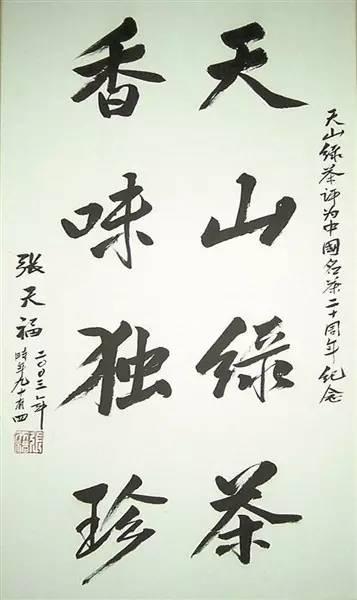 天山绿茶评为中國名茶二十周年纪念
天山绿茶
香味独珍
張天福
二〇〇三年
時年九十有四